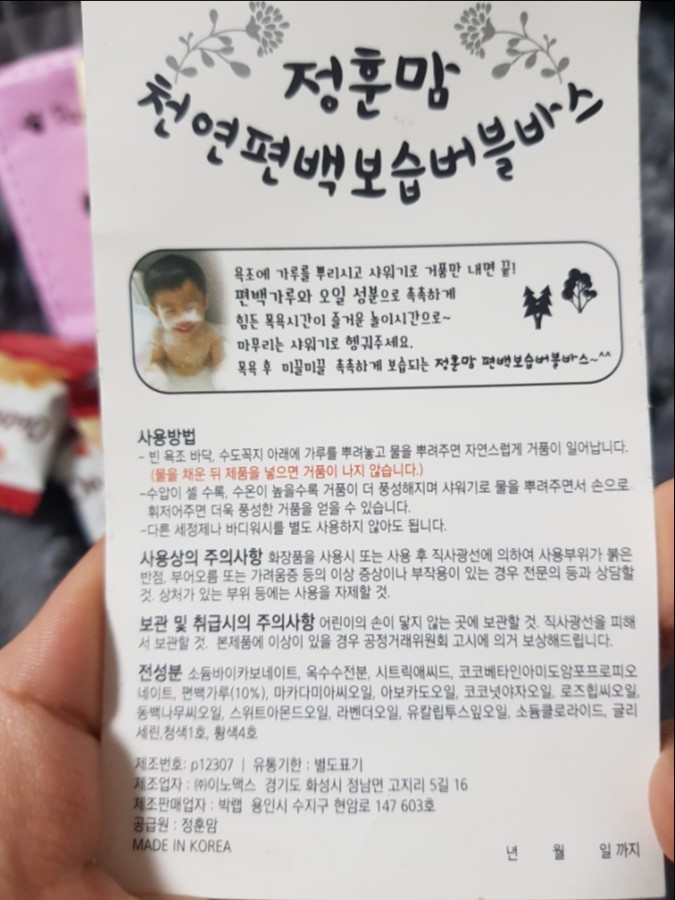 정훈맘
천연편백보습버블바스
욕조에 가루를 뿌리시고 샤워기로 거품만 내면 끝!
편백가루와 오일 성분으로 촉촉하게
힘든 목욕시간이 즐거운 놀이시간으로~
마무리는 샤워기로 헹궈주세요.
목욕 후 미끌미끌 촉촉하게 보습되는 정훈맘 편백보습버블바스~^^
사용방법
- 빈 욕조 바닥, 수도꼭지 아래에 가루를 뿌려놓고 물을 뿌려주면 자연스럽게 거품이 일어납니다.
(물을 채운 뒤 제품을 넣으면 거품이 나지 않습니다.)
-수압이 셀 수록, 수온이 높을수록 거품이 더 풍성해지며 샤워기로 물을 뿌려주면서 손으로
휘저어주면 더욱 풍성한 거품을 얻을 수 있습니다.
-다른 세정제나 바디워시를 별도 사용하지 않아도 됩니다.
사용상의 주의사항 화장품을 사용시 또는 사용 후 직사광선에 의하여 사용부위가 붉은
반점, 부어오름 또는 가려움증 등의 이상 증상이나 부작용이 있는 경우 전문의 등과 상담할
것. 상처가 있는 부위 등에는 사용을 자제할 것.
보관 및 취급시의 주의사항 어린이의 손이 닿지 않는 곳에 보관할 것. 직사광선을 피해
서 보관할 것. 본제품에 이상이 있을 경우 공정거래위원회 고시에 의거 보상해드립니다.
전성분 소듐바이카보네이트, 옥수수전분, 시트릭애씨드, 코코베타인아미도암포프로피오
네이트, 편백가루(10%), 마카다미아씨오일, 아보카도오일, 코코넛야자오일, 로즈힙씨오일,
동백나무씨오일, 스위트아몬드오일, 라벤더오일, 유칼립투스잎오일, 소듐클로라이드, 글리
세린,청색1호, 황색4호
제조번호: p12307 | 유통기한 : 별도표기
제조업자 : ㈜이노맥스 경기도 화성시 정남면 고지리 5길 16
제조판매업자 : 박랩 용인시 수지구 현암로 147 603호
공급원 : 정훈맘
MADE IN KOREA
년 월 일 까지